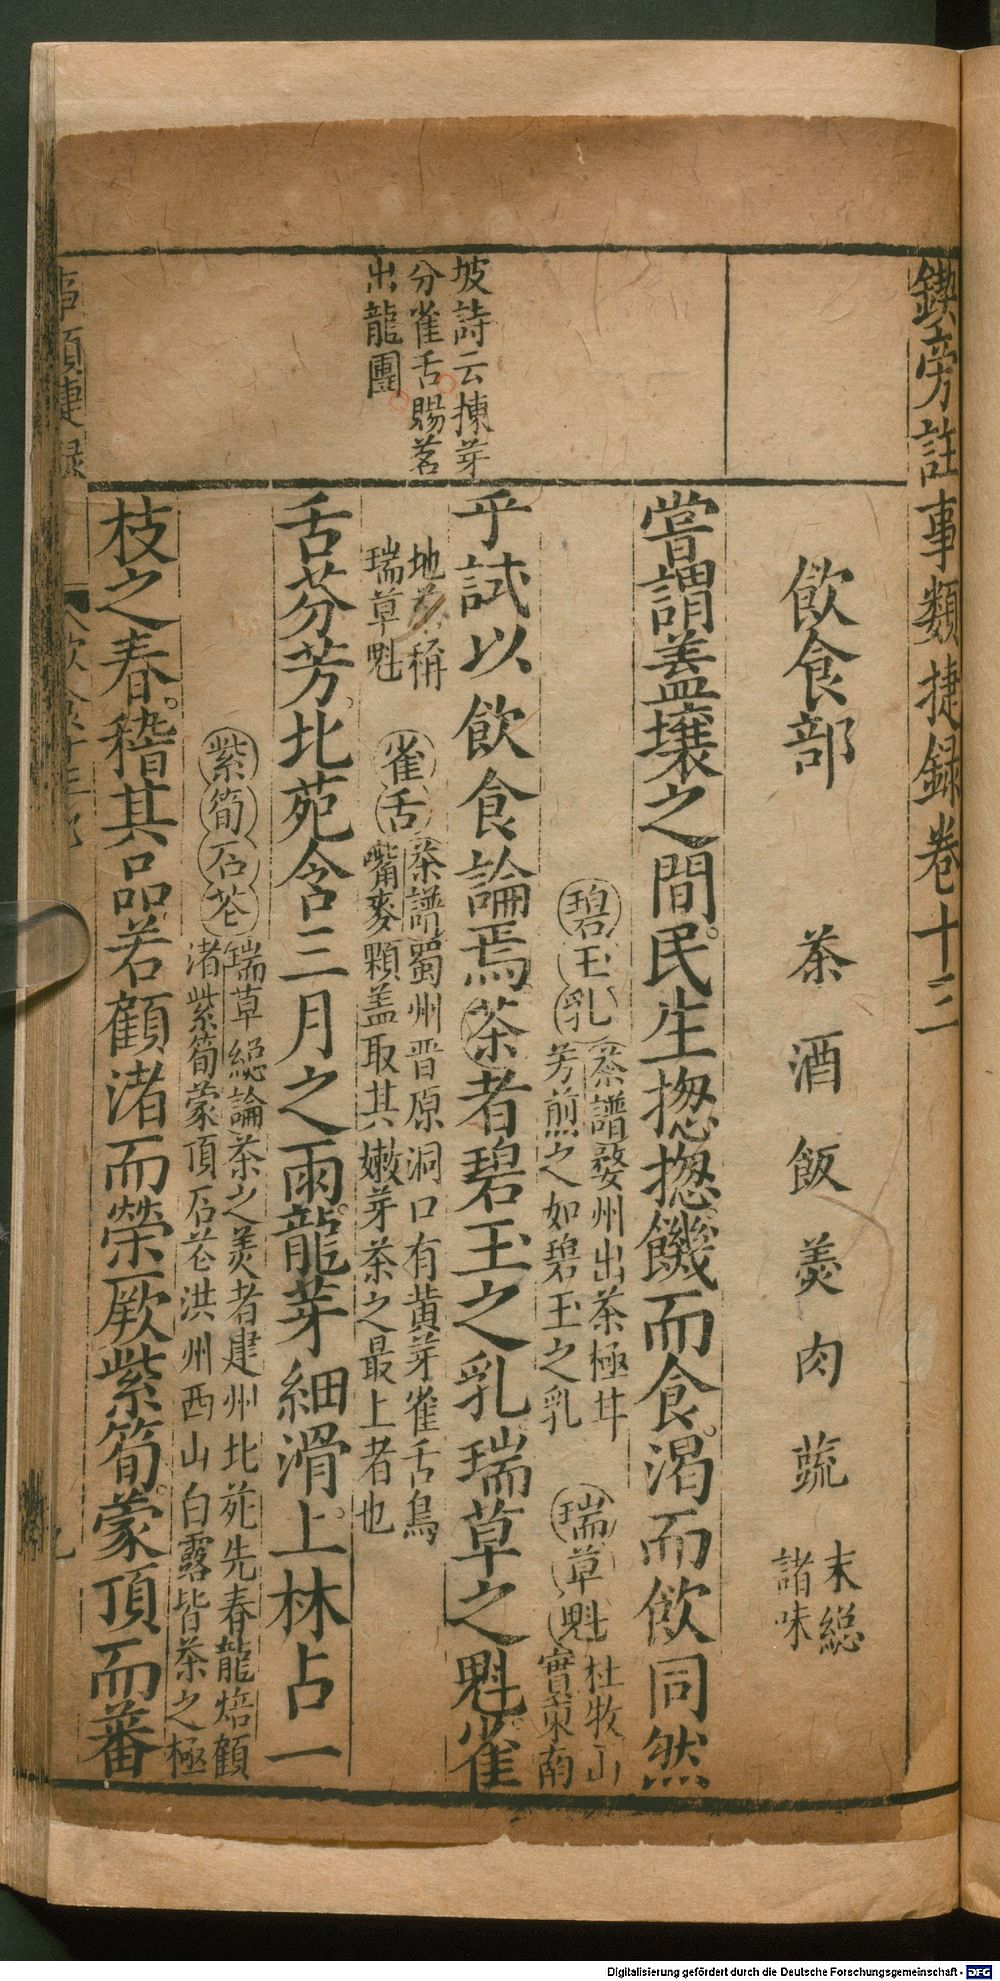 鍥旁註事類捷録卷十三
飲食部 茶 酒 飯 羹 肉 蔬 末總諸味
嘗謂蓋壤之間民生揔揔饑而食渴而飲同然
碧玉乳 茶譜婺州出茶極甘芳煎之如碧玉之乳 瑞草魁 杜牧山實東南
乎試以飲食論焉茶者碧玉之乳瑞草之魁雀
坡詩云揀芽分雀舌賜茗出龍團
地茶稱瑞草魁 雀舌 茶譜蜀州晋原洞口有黄芽雀舌鳥嘴麥顆盖取其嫩芽茶之最上者也
舌芬芳北苑含三月之雨龍芽細滑上林占一
紫筍石花 瑞草緫論茶之羙者建州北苑先春龍焙顧渚紫筍蒙頂石花洪州西山白露皆茶之極
枝之春稽其品若顧渚而榮厥紫筍蒙頂而蕃
事類捷録
Digitalisierung gefördert durch die Deutsche Forschungsgemeinschaft - DFG